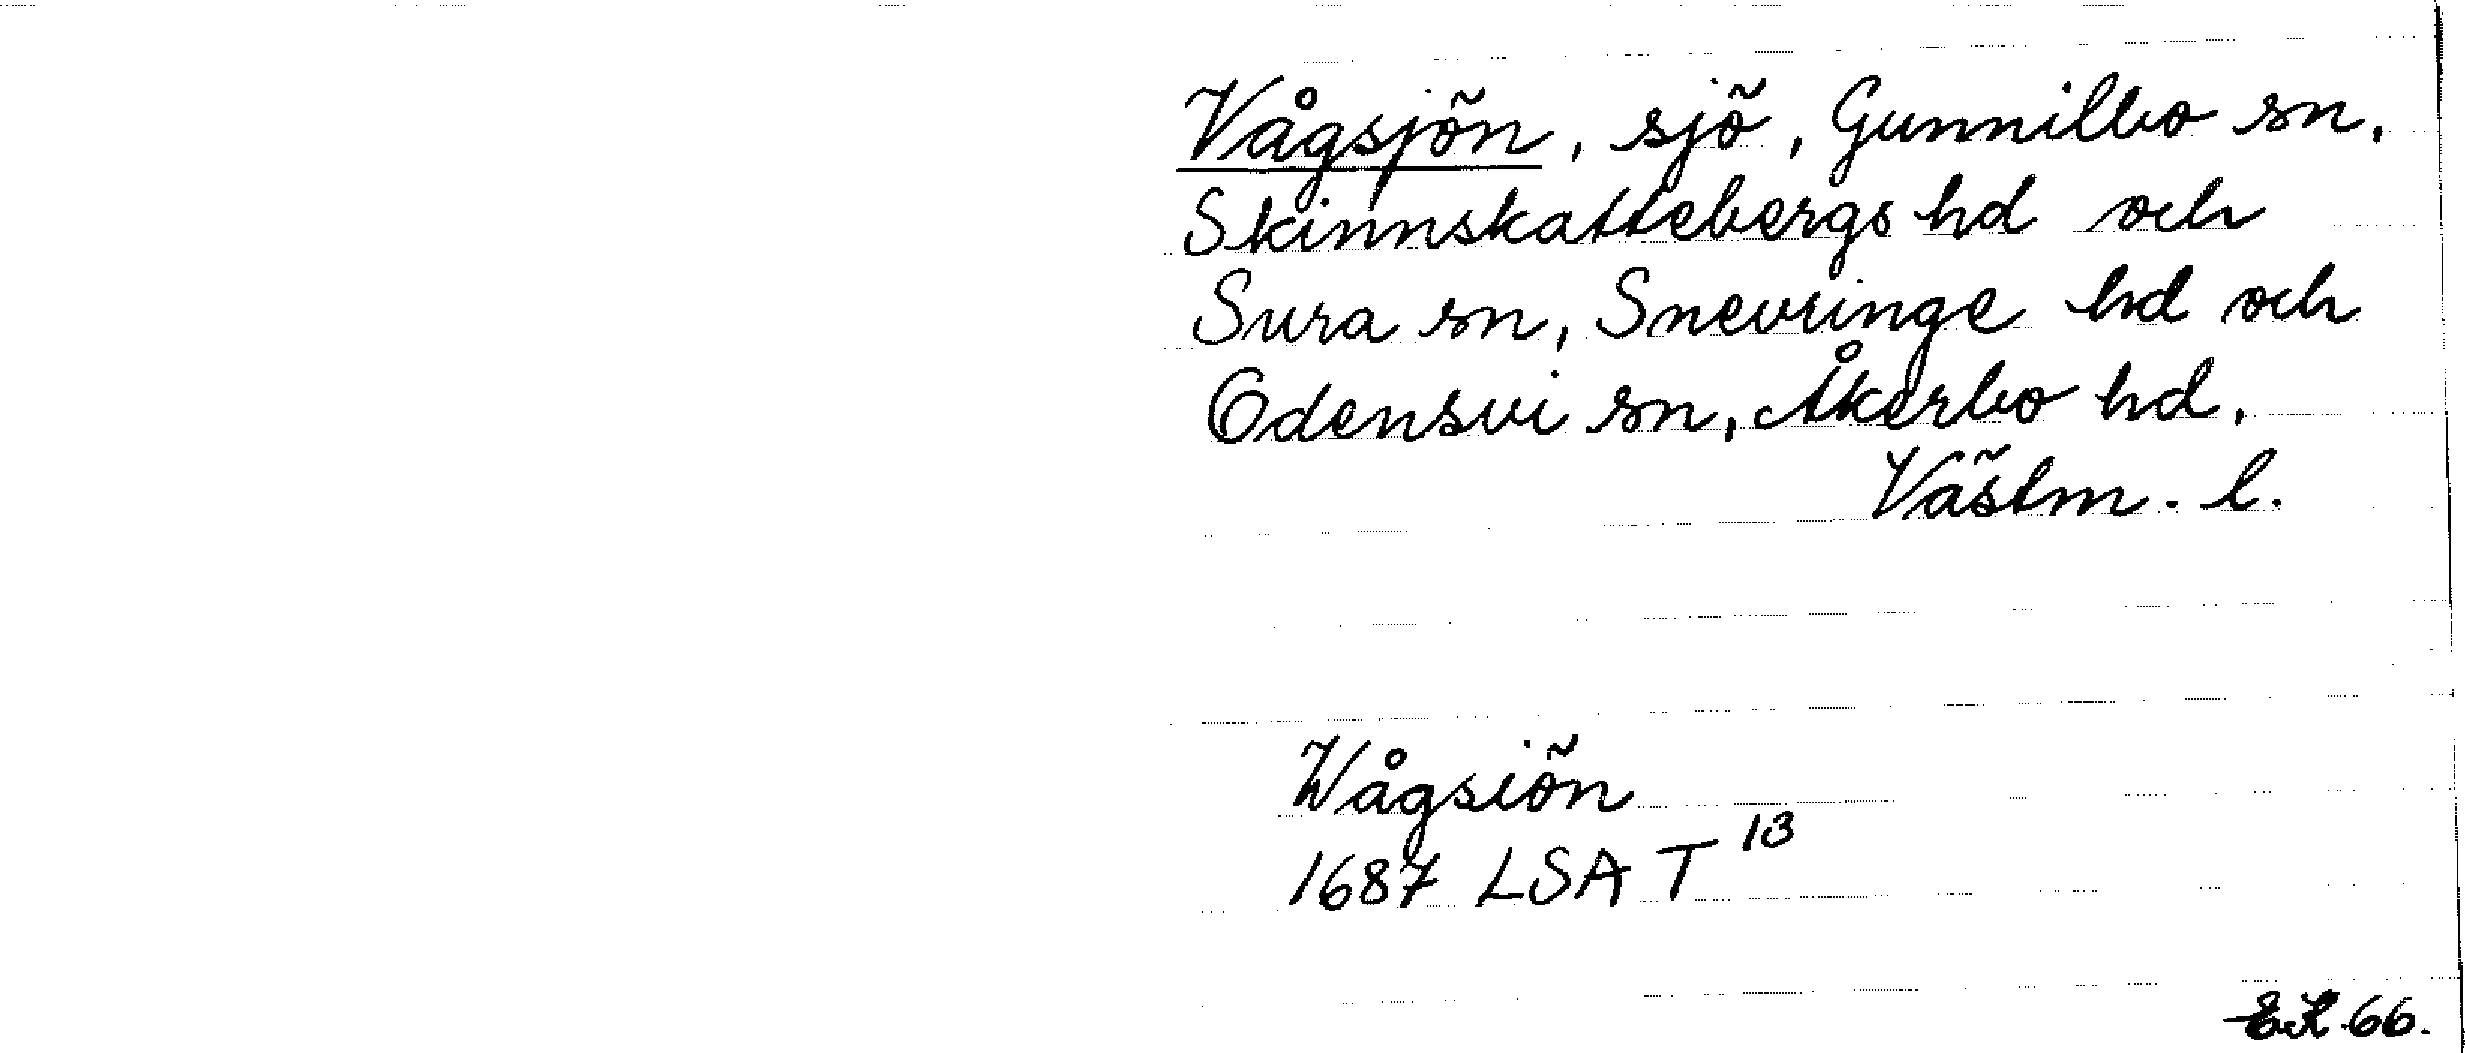 Vågsjön, sjö, Gunnilbo sn,
Skinnskattebergs hd och
Sura sn, Snevringe hd och
Odensvi sn, Åkerbo hd,
Västm. l.
Wågsiön
1687 LSA T 13
EK 66.